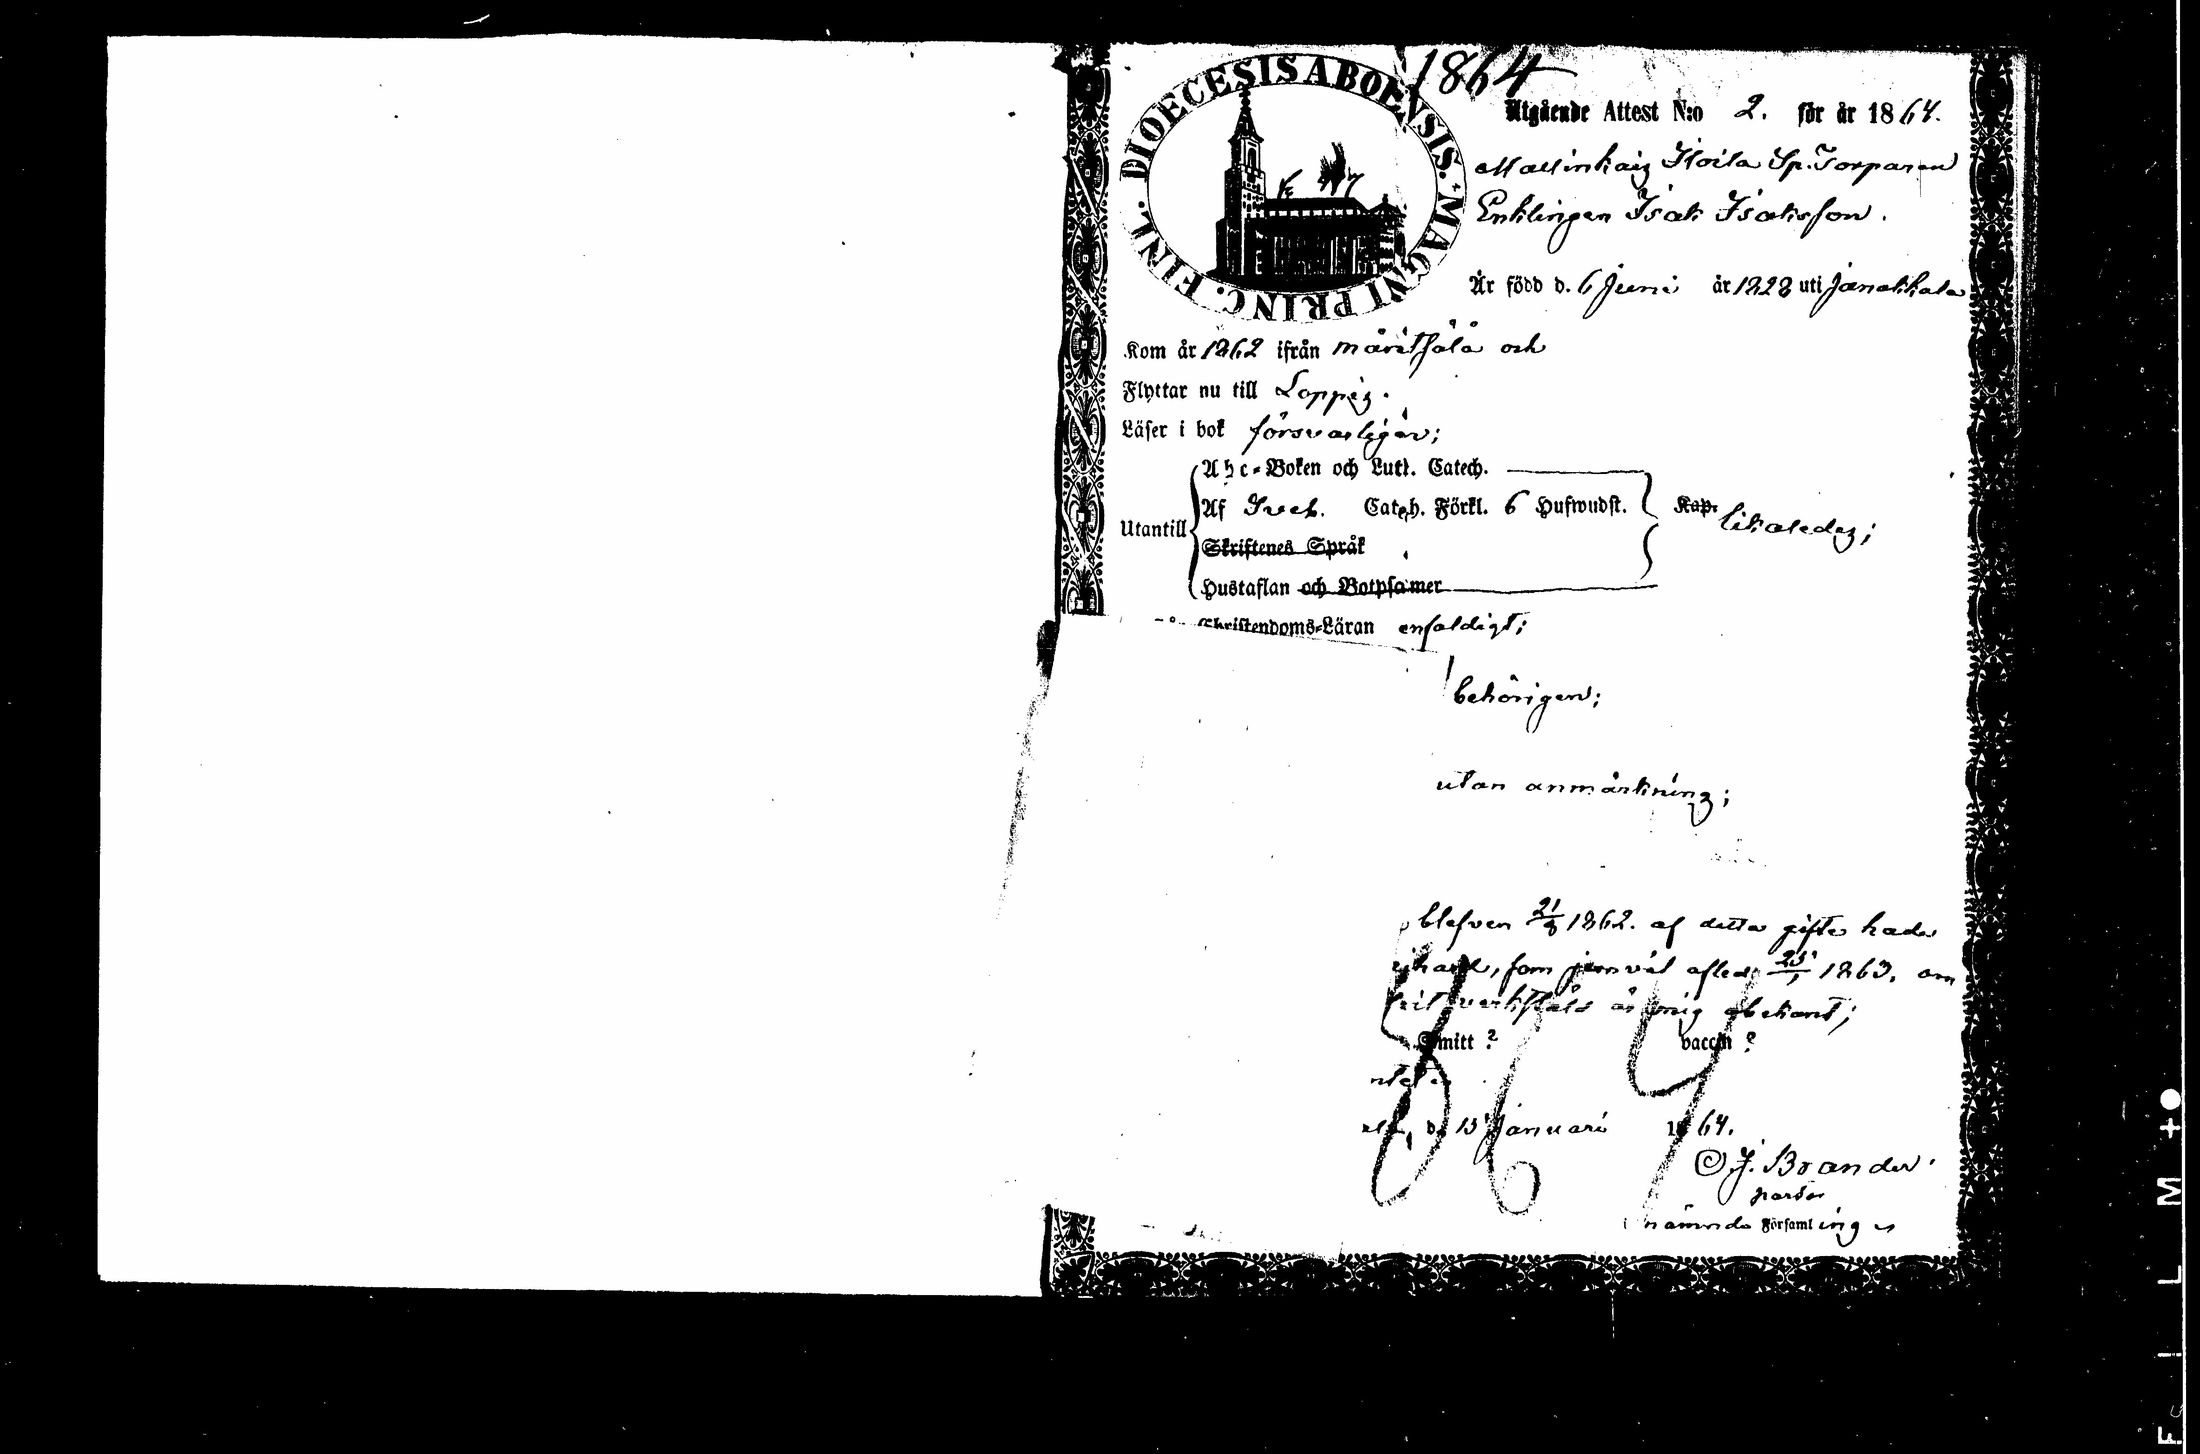 1864
DIOECESIS ABOENSIS. MAGNI PRINC. FINL.
Utgående Attest N:o 2. för år 1864.
Sp. Torparen
Enklingen Isak Isaksson.
Är född d. 6 Juni år 1828 uti Janakkala
Kom år 1862 ifrån och
Flyttar nu till Loppis.
Läser i bok försvarligen;
Abc-Boken och Luth. Catech.
Af Sveb. Catech. Förkl. 6 Hufwudst. Kap. likaledes;
Utantill
Skriftenes Språk
Hustaflan och Botpsalmer
Christendoms-Läran enfaldigt;
behörigen;
utan anmärkning;
blefven 21/9 1862. af detta gifte hade
som jemväl afled 25/1 1863. om
är mig obekant;
Smitt ? vaccin ?
d. 15 Januari 1864.
864
J. Brander
pastor
nämnda Församlings
FiLM